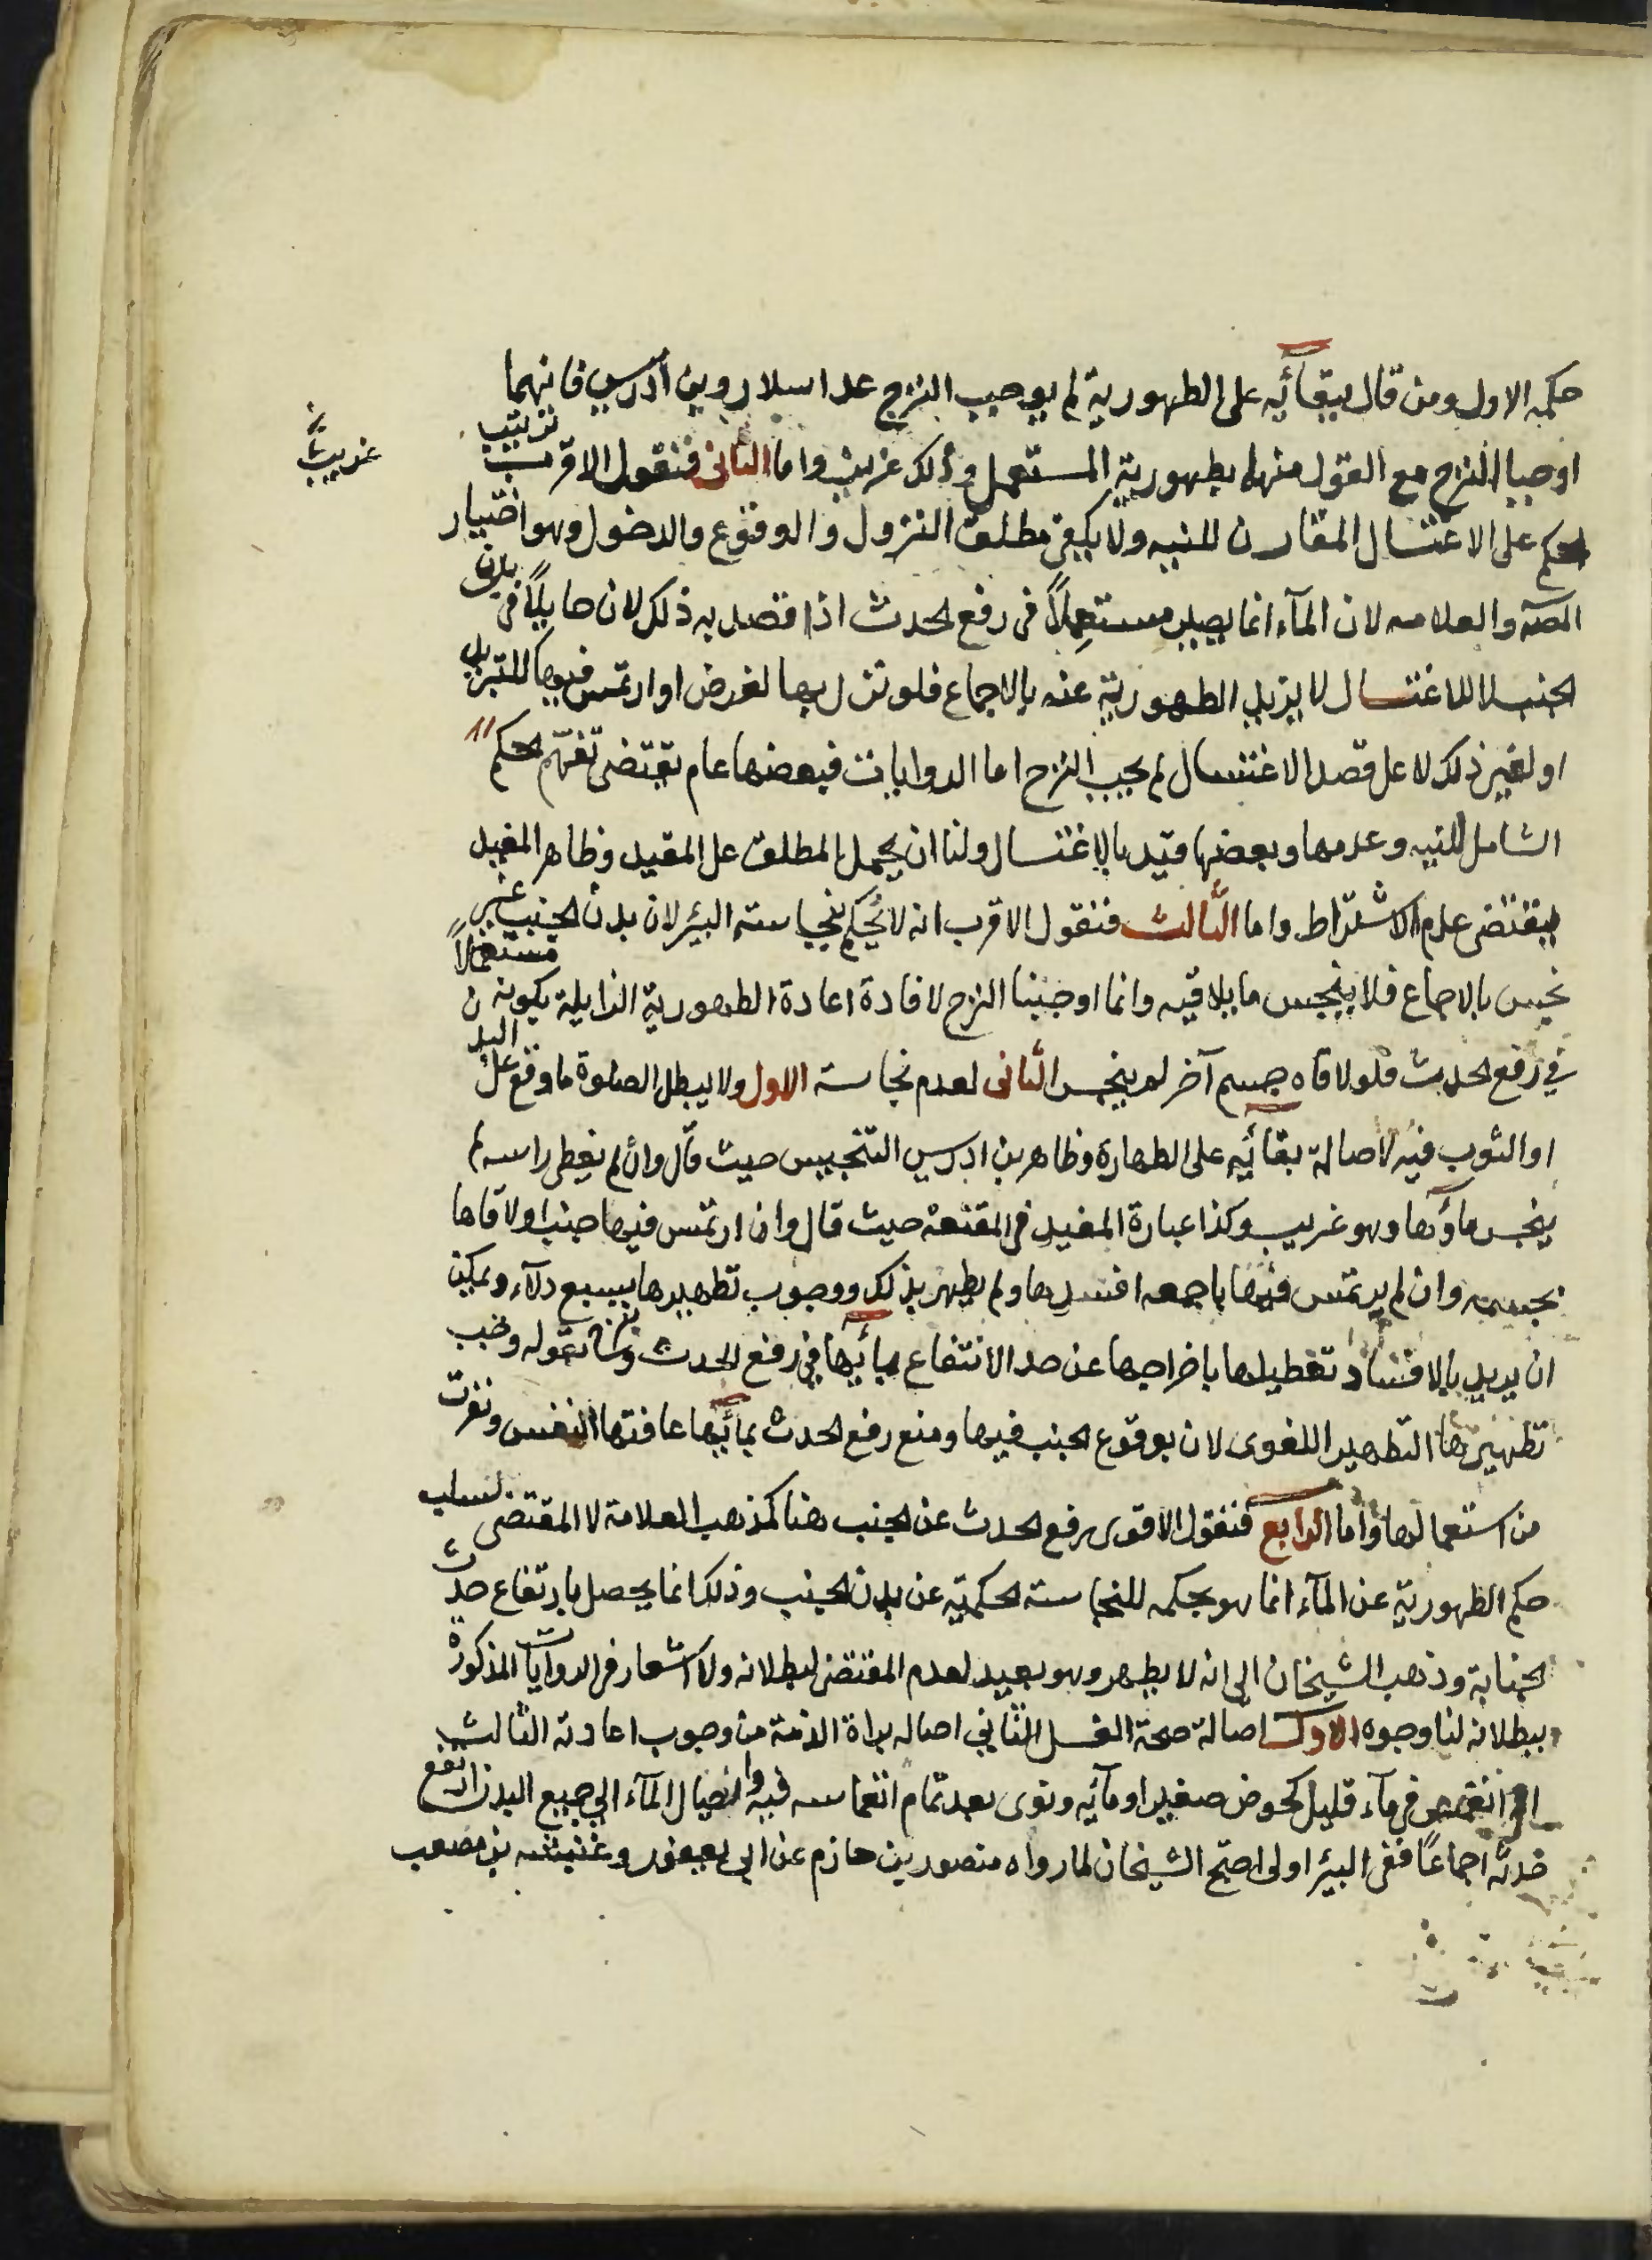 حكمه الاول ومن قال ببقآئه على الطهورية لم يوجب النزح عدا سلار وبن ادريس فانهما
اوجبا النزح مع القول منهما بطهورية المستعمل وذلك غريب واما الثانى فنقول الاقرب ترتيب
غريب
الحكم على الاغتسال المقارن للنيه ولا يكفى مطلق النزول والوقوع والدخول وهو اختيار
المصه والعلامه لان المآء انما يصير مستعملاً فى رفع الحدث اذا قصد به ذلك لان حايلاً فى بدن
الجنب لا للاغتسال لا يزيل الطهورية عنه بالاجماع فلو نزل بها لغرض او ارتمس فيها للتبريد
او لغير ذلك لا على قصد الاغتسال لم يجب النزح اما الروايات فبعضها عام تقتضى تفهم الحكم
الشامل للنيه وعدمها وبعضها قيد بالاغتسال ولنا ان يحمل المطلق على المقيد وظاهر المفيد
يقتضى عدم الاشتراط واما الثالث فنقول الاقرب انه لا يحكم بنجاسته البير لان بدن الجنب غير
نجس بالاجماع فلا ينجس ما يلاقيه وانما اوجبنا النزح لافادة اعادة الطهورية الزايلة بكونه مستعملاً
في رفع الحدث فلو لاقاه جسم آخر لم ينجس الثانى لعدم نجاسة الاول ولا يبطل الصلوة ما وقع على البدن
او الثوب فيه لاصالة بقآئه على الطهارة وظاهر بن ادريس التنجيس حيث قال وان لم يغطى راسه لم
ينجس ماؤها وهو غريب وكذا عبارة المفيد فى المقنعة حيث قال وان ارتمس فيها جنب او لاقاها
بجسمه وان لم يرتمس فيها باجمعه افسدها ولم يطهر بذلك ووجوب تطهيرها بسبع دلآء ويمكن
ان يريد بالافساد تعطيلها باخراجها عن حد الانتفاع بمآئها في رفع الحدث بقوله وجب
تطهيرها التطهير اللغوى لان بوقوع الجنب فيها ومنع رفع الحدث بمآئها عافتها النفس ونفرت
من استعمالها واما الرابع فنقول الاقوى رفع الحدث عن الجنب هنا كمذهب العلامة لا المقتضى لسلب
حكم الطهورية عن المآء انما هو بحكمه للنجاسة الحكمية عن بدن الجنب وذلك انما يحصل بارتفاع حدث
الجنابة وذهب الشيخان الى انه لا يطهر وهو بعيد لعدم المقتضى لبطلانه ولا اشعار فى الروايات المذكورة
ببطلانه لنا وجوه الاول اصالة صحة الغسل الثاني اصاله براة الذمة من وجوب اعادته الثالث
انغمس فى مآء قليل كحوض صغير او مآئيه ونوى بعد تمام انغماسه فيه وايصال المآء الى جميع البدن ارتفع
حدثه اجماعاً ففى البير اولى احتج الشيخان لما رواه منصور بن حازم عن ابى يعفور وعنبسه بن مصعب